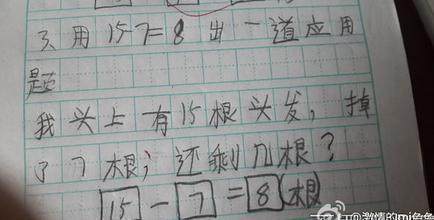 3、用15-7=8出一道应用
题
我头上有15根头发，掉
了7根；还剩几根？
15-7=8(根)
@激情的mj角色